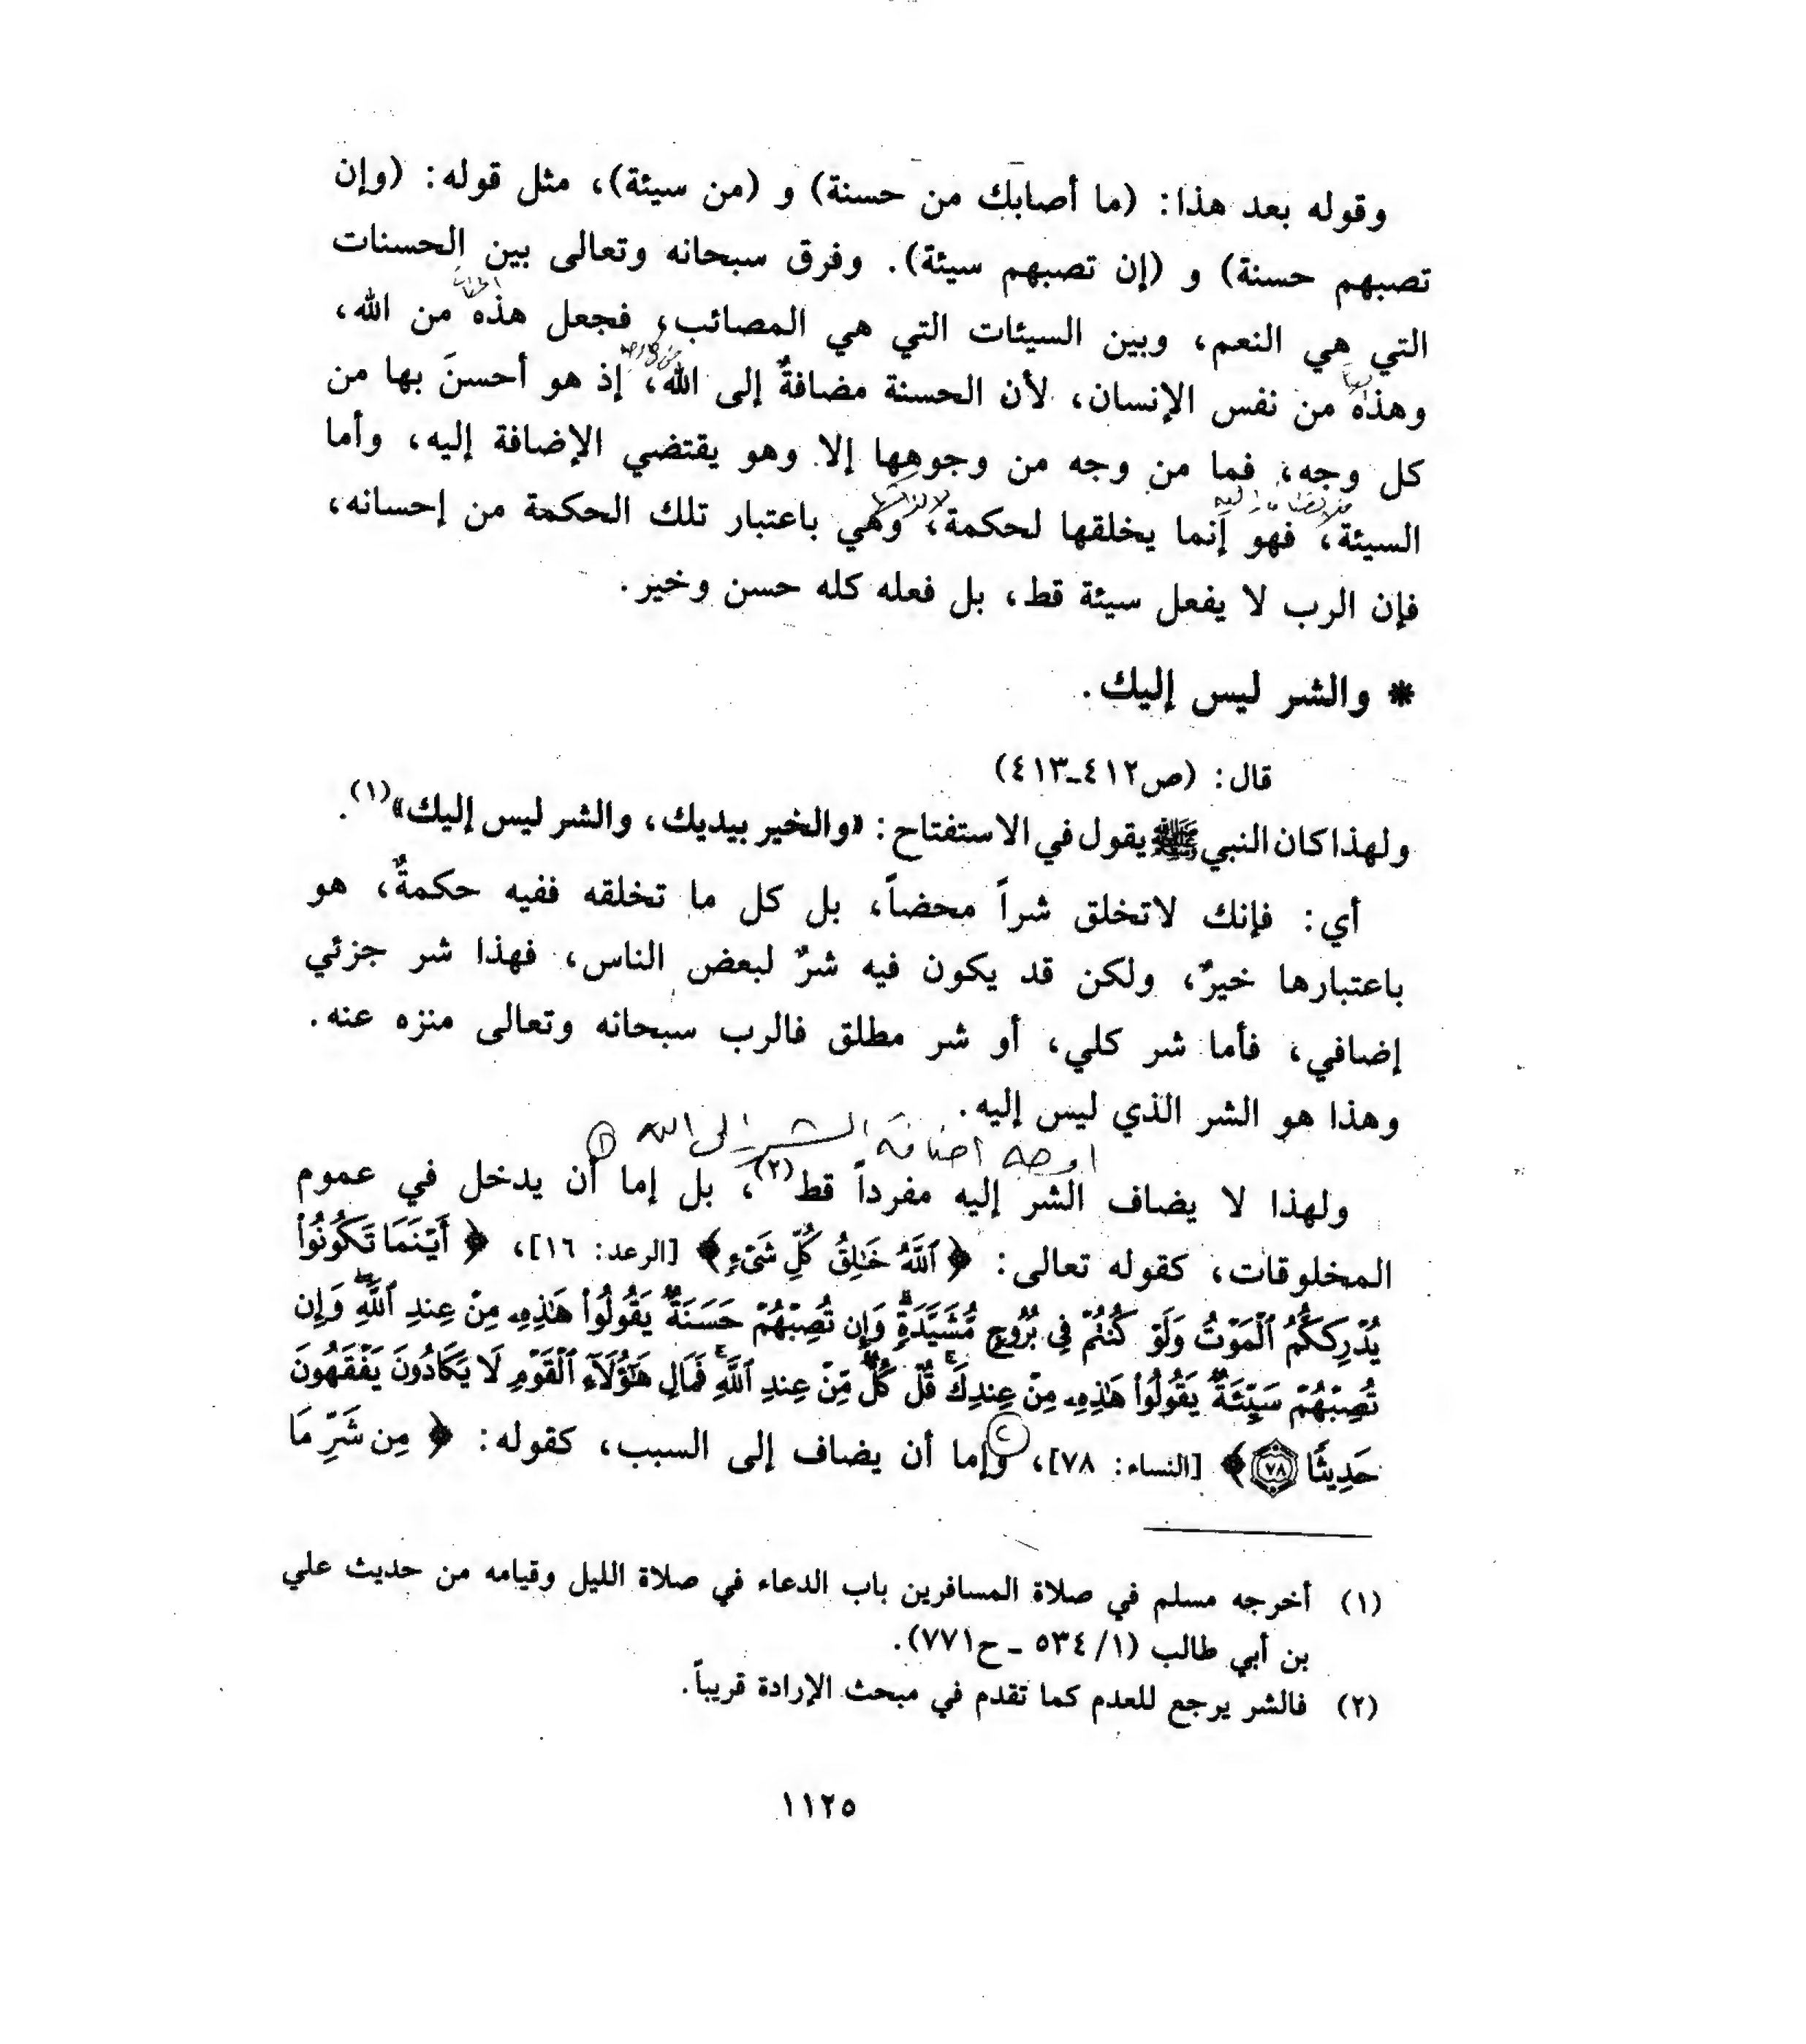 وقوله بعد هذا: (ما أصابك من حسنة) و (من سيئة)، مثل قوله: (وإن
تصبهم حسنة) و (إن تصبهم سيئة). وفرق سبحانه وتعالى بين الحسنات
التي هي النعم، وبين السيئات التي هي المصائب، فجعل هذه من الله،
وهذه من نفس الإنسان، لأن الحسنة مضافةٌ إلى الله، إذ هو أحسنَ بها من
كل وجه، فما من وجه من وجوهها إلا وهو يقتضي الإضافة إليه، وأما
السيئة، فهو إنما يخلقها لحكمة، وهي باعتبار تلك الحكمة من إحسانه،
فإن الرب لا يفعل سيئة قط، بل فعله كله حسن وخير.
* والشر ليس إليك.
قال: (ص٤١٢-٤١٣)
ولهذا كان النبي ﷺ يقول في الاستفتاح: «والخير بيديك، والشر ليس إليك»(١).
أي: فإنك لاتخلق شراً محضاً، بل كل ما تخلقه ففيه حكمةٌ، هو
باعتبارها خيرٌ، ولكن قد يكون فيه شرٌ لبعض الناس، فهذا شر جزئي
إضافي، فأما شر كلي، أو شر مطلق فالرب سبحانه وتعالى منزه عنه.
وهذا هو الشر الذي ليس إليه.
اوجه اضافة الشر إلى الله ①
ولهذا لا يضاف الشر إليه مفرداً قط(٢)، بل إما أن يدخل في عموم
المخلوقات، كقوله تعالى: ﴿ ٱللَّهُ خَـٰلِقُ كُلِّ شَىْءٍ﴾ [الرعد: ١٦]، ﴿ أَيْنَمَا تَكُونُوا۟
يُدْرِككُّمُ ٱلْمَوْتُ وَلَوْ كُنتُمْ فِى بُرُوجٍ مُّشَيَّدَةٍۗ وَإِن تُصِبْهُمْ حَسَنَةٌ يَقُولُوا۟ هَـٰذِهِۦ مِنْ عِندِ ٱللَّهِۖ وَإِن
تُصِبْهُمْ سَيِّئَةٌ يَقُولُوا۟ هَـٰذِهِۦ مِنْ عِندِكَۚ قُلْ كُلٌّ مِّنْ عِندِ ٱللَّهِۖ فَمَالِ هَـٰٓؤُلَآءِ ٱلْقَوْمِ لَا يَكَادُونَ يَفْقَهُونَ
حَدِيثًا ٧٨﴾ [النساء: ٧٨]، ② وإما أن يضاف إلى السبب، كقوله: ﴿ مِن شَرِّ مَا
(١) أخرجه مسلم في صلاة المسافرين باب الدعاء في صلاة الليل وقيامه من حديث علي
بن أبي طالب (١/ ٥٣٤ - ح٧٧١).
(٢) فالشر يرجع للعدم كما تقدم في مبحث الإرادة قريباً.
١١٢٥